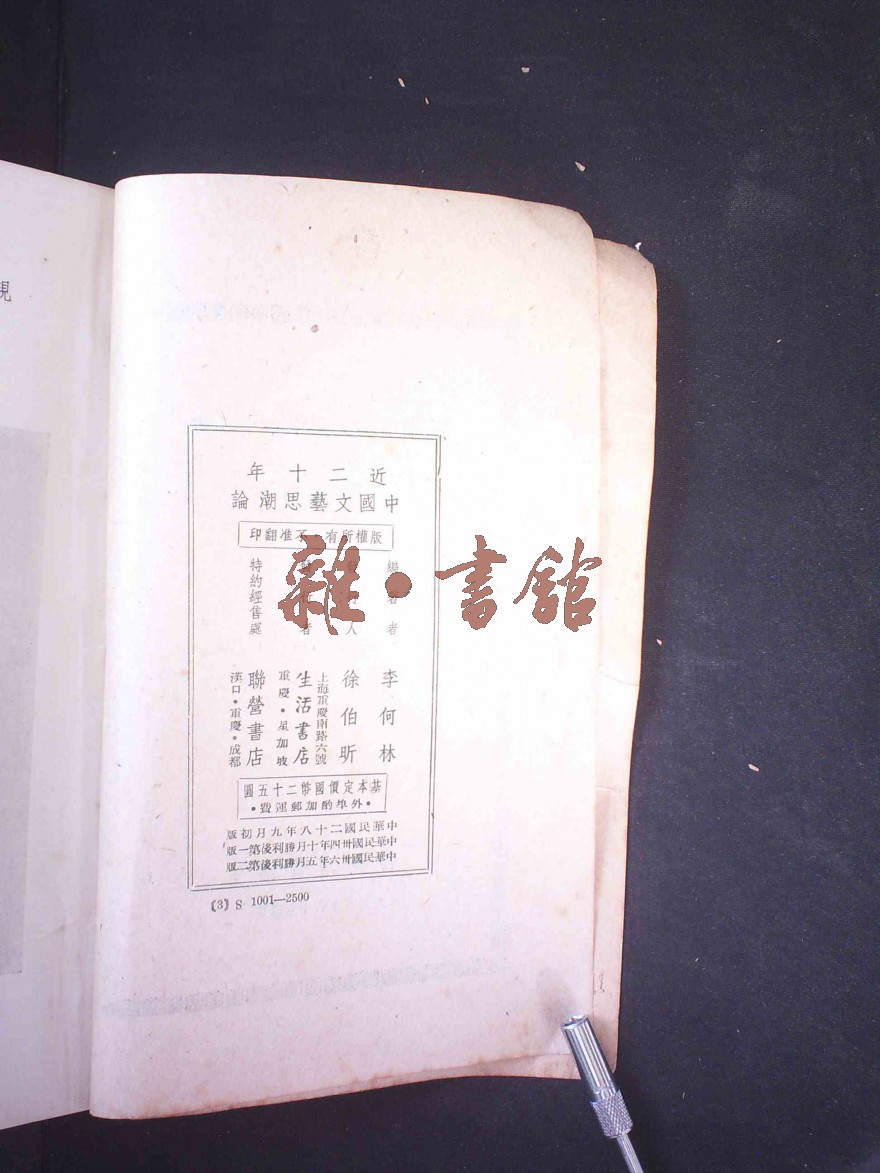 近二十年
中國文藝思潮論
版權所有 不准翻印
編著者 李何林
人 徐伯昕
上海重慶南路六號
者 生活書店
重慶・星加坡
特約經售處 聯營書店
漢口・重慶・成都
基本定價國幣二十五圓
・外埠酌加郵運費・
中華民國二十八年九月初版
中華民國卅四年十月勝利後第一版
中華民國卅六年五月勝利後第二版
〔3〕 S 1001—2500
雜・書館